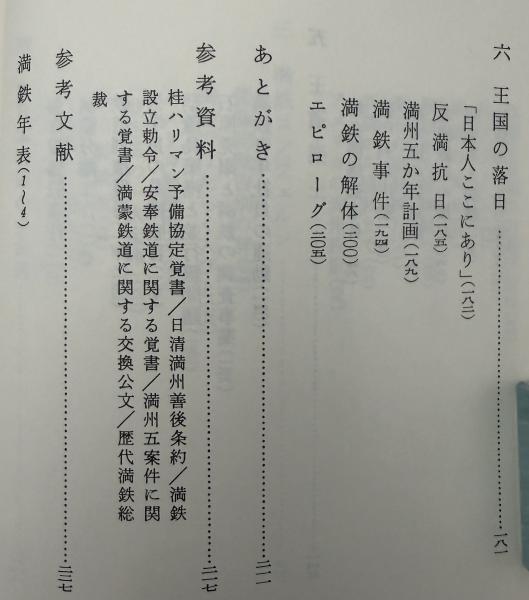 六 王国の落日……………………一八一
「日本人ここにあり」(一八二)
反満抗日(一八五)
満州五か年計画(一八九)
満鉄事件(一九四)
満鉄の解体(二〇〇)
エピローグ(二〇五)
あとがき……………………二一一
参考資料……………………二一七
桂ハリマン予備協定覚書/日清満州善後条約/満鉄
設立勅令/安奉鉄道に関する覚書/満州五案件に関
する覚書/満蒙鉄道に関する交換公文/歴代満鉄総
裁
参考文献……………………二三七
満鉄年表(1〜4)